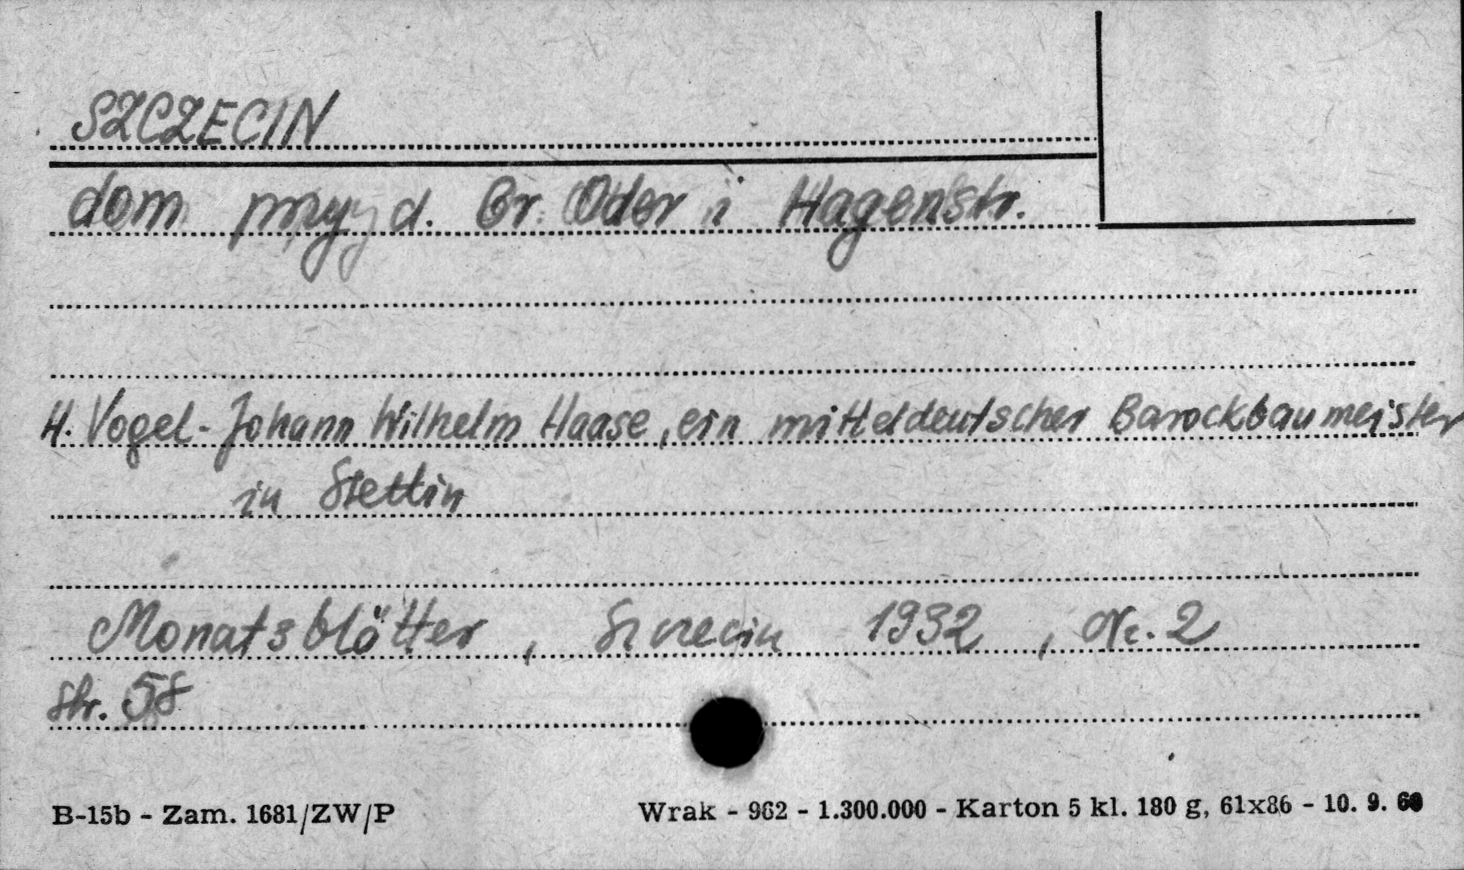 SZCZECIN
dom przy d. Gr. Oder i Hagenstr.
H. Vogel - Johann Wilhelm Haase, ein mitteldeutscher Barockbaumeister
in Stettin
Monatsblätter, Szczecin 1932, Nr. 2
str. 58
B-15b - Zam. 1681/ZW/P
Wrak - 962 - 1.300.000 - Karton 5 kl. 180 g, 61x86 - 10. 9. 60